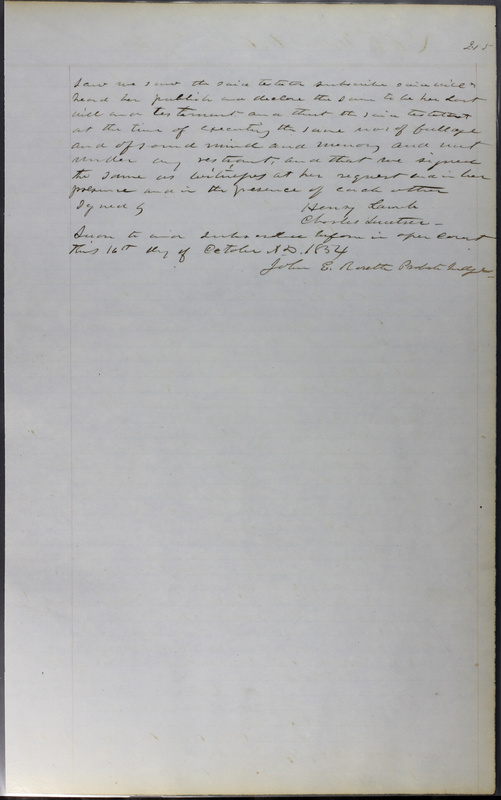 215
saw we saw the said testator subscribe said will &
heard her publish and declare the same to be her last
will and testament and that the said testator
at the time of executing the same was of full age
and of sound mind and memory and not
under any restraint, and that we signed
the same as witnesses at her request and in her
presence and in the presence of each other
Signed by Henry Lamb
Charles
Sworn to and Subscribed before in open Court
this 16th day of October A.D. 1854
John E. Rosette Probate Judge